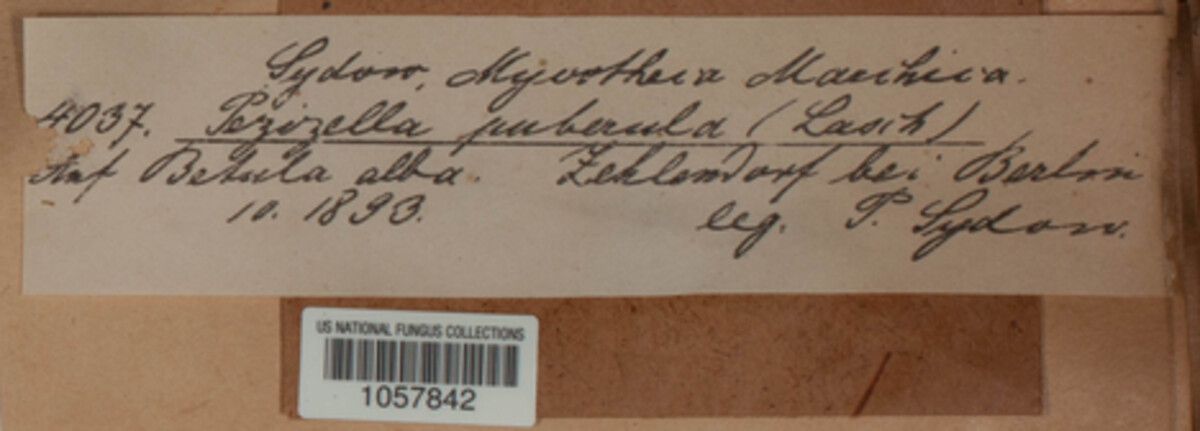 Sydow, Mycotheca Marchica.
4037. Pezizella puberula (Lasch)
Auf Betula alba. Zehlendorf bei Berlin
10. 1893. leg. P. Sydow.
US NATIONAL FUNGUS COLLECTIONS
1057842